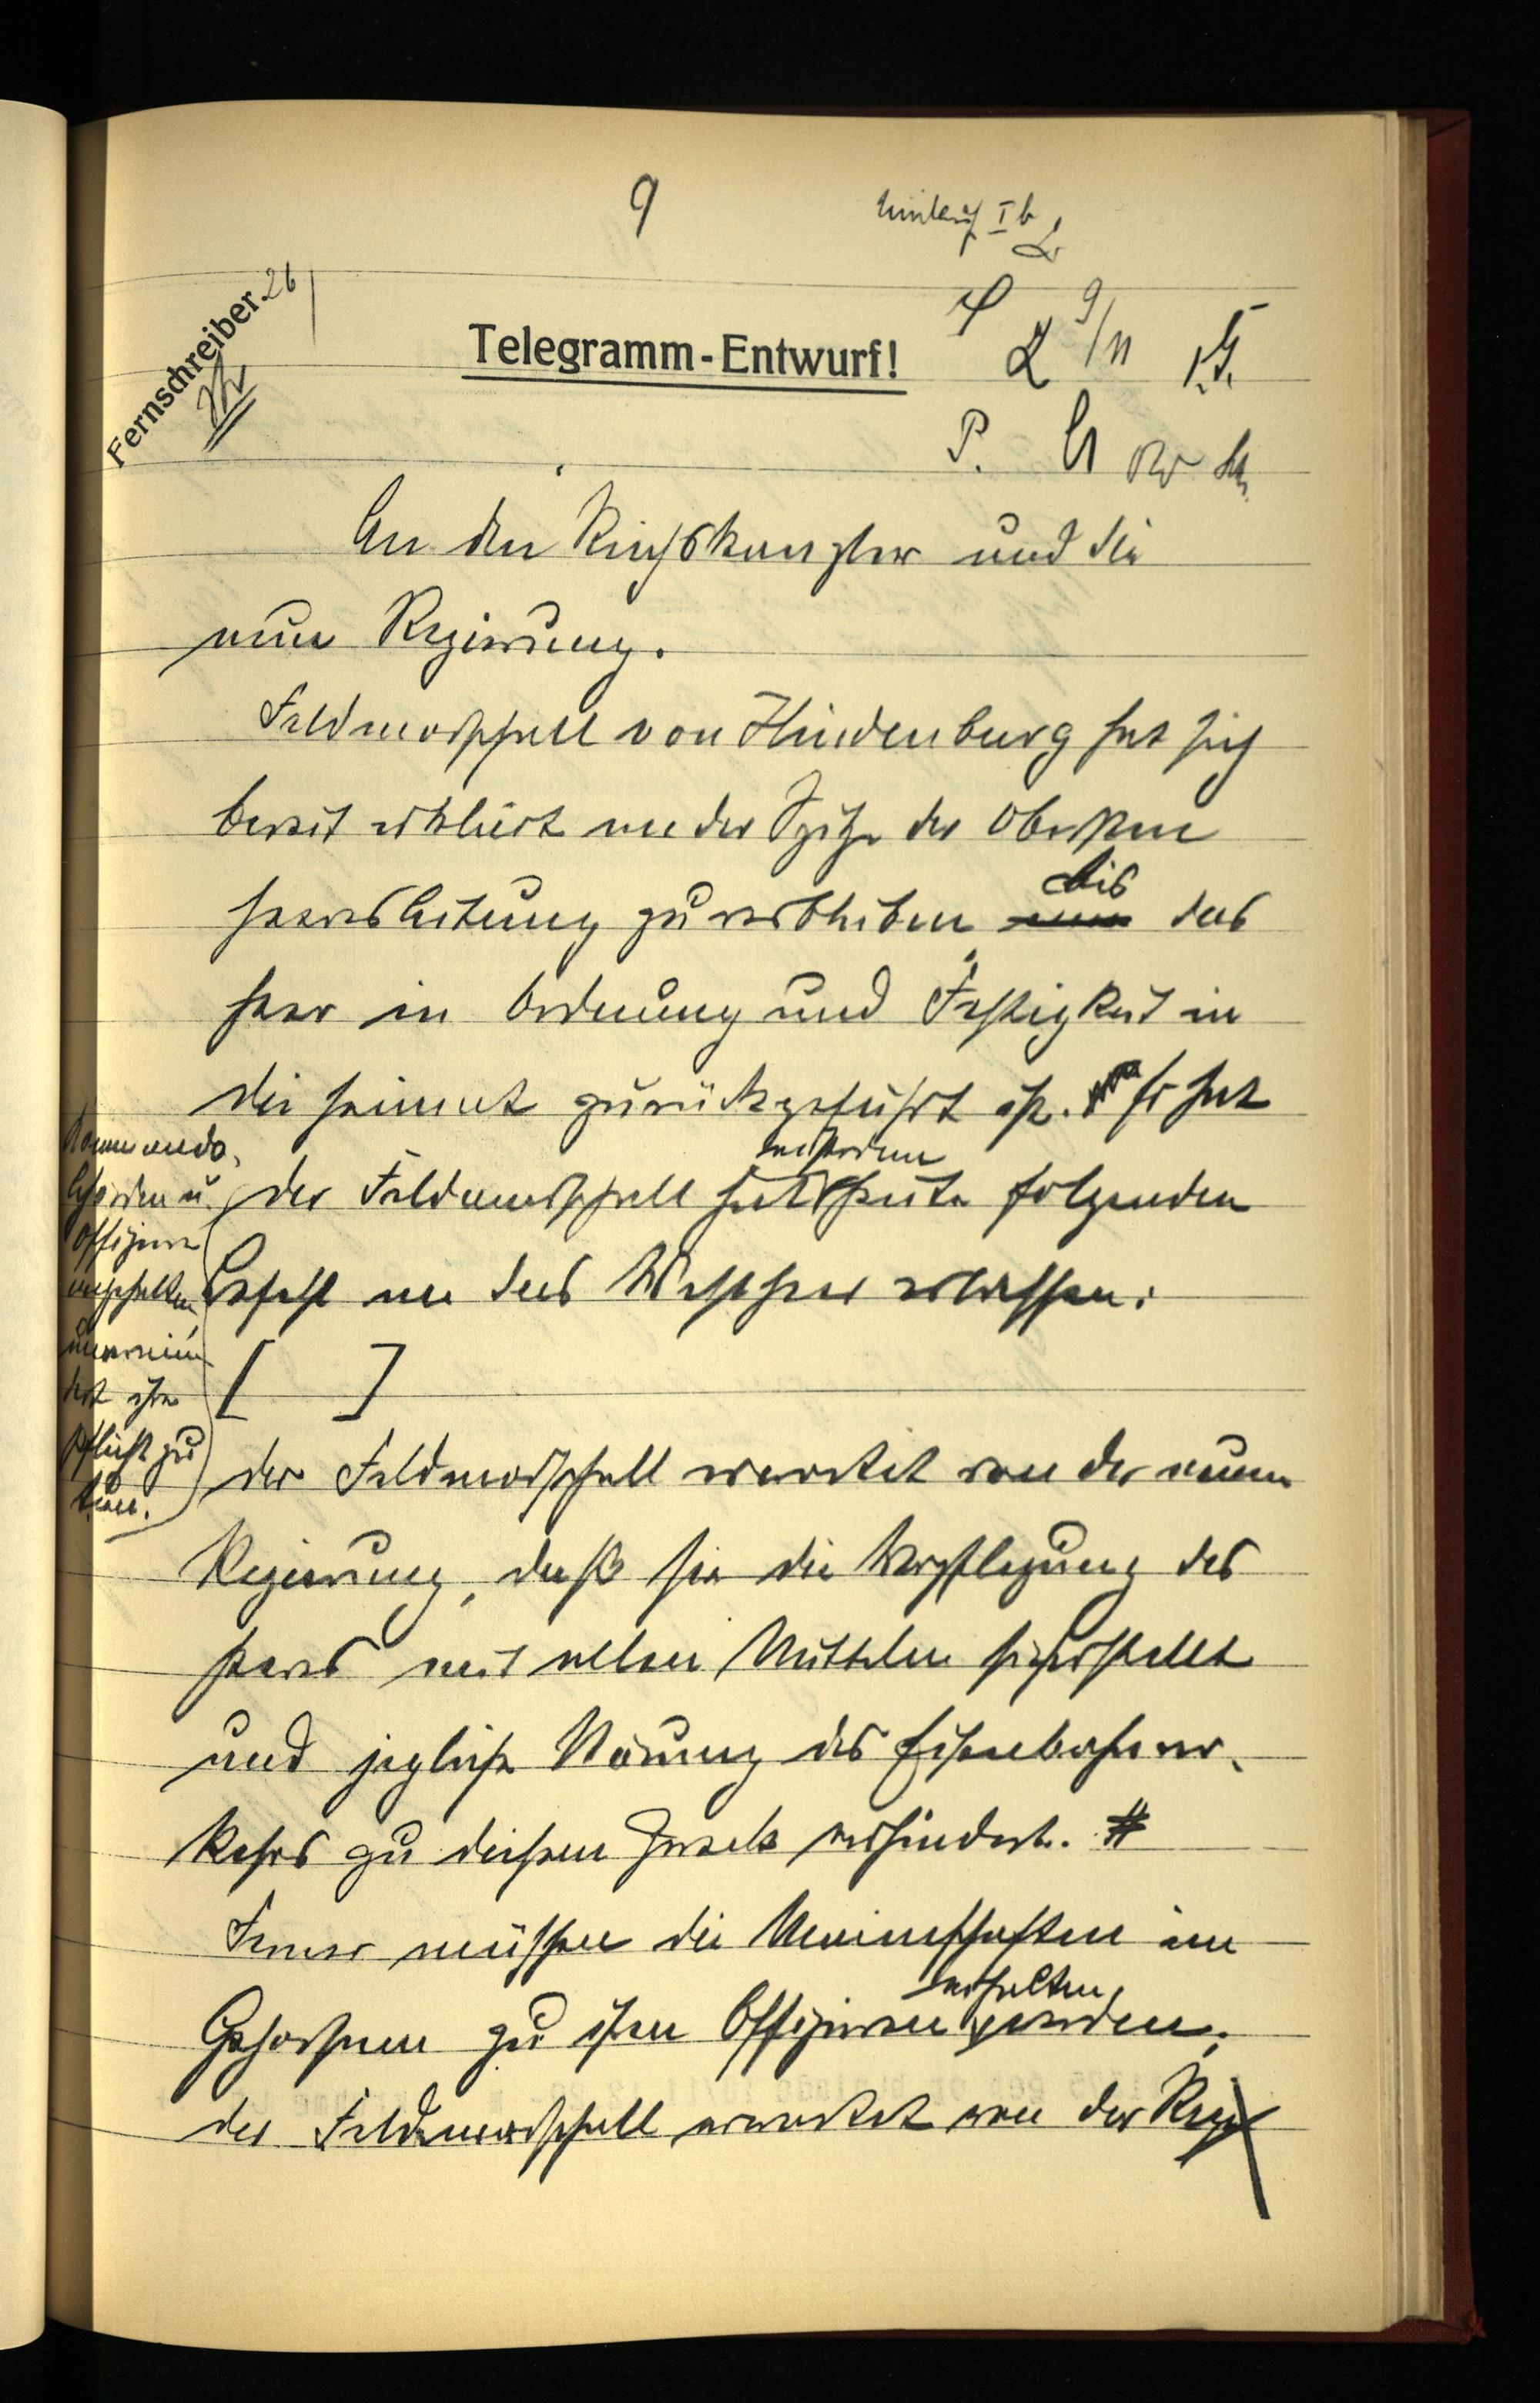 9
Umlauf Ib
Fernschreiber. 26
Telegramm-Entwurf!
9/11
P.
An den Reichskanzler und die
neue Regierung.
Feldmarschall von Hindenburg hat sich
bereit erklärt an der Spitze der Obersten
Heeresleitung zu verbleiben, bis das
Heer in Ordnung und Festigkeit in
die Heimat zurückgeführt ist. Er hat
Kommando-
behörden u.
Offiziere
angehalten,
unvermin-
dert ihre
Pflicht zu
tun.
außerdem
der Feldmarschall hat heute folgenden
Befehl an das Westheer erlassen:
[ ]
der Feldmarschall erwartet von der neuen
Regierung, daß sie die Verpflegung des
Heeres mit allen Mitteln sicherstellt
und jegliche Störung des Eisenbahnver-
kehrs zu diesem Zweck verhindert. #
Ferner müssen die Mannschaften im
erhalten
Gehorsam zu ihren Offizieren werden,
der Feldmarschall erwartet von der Reg